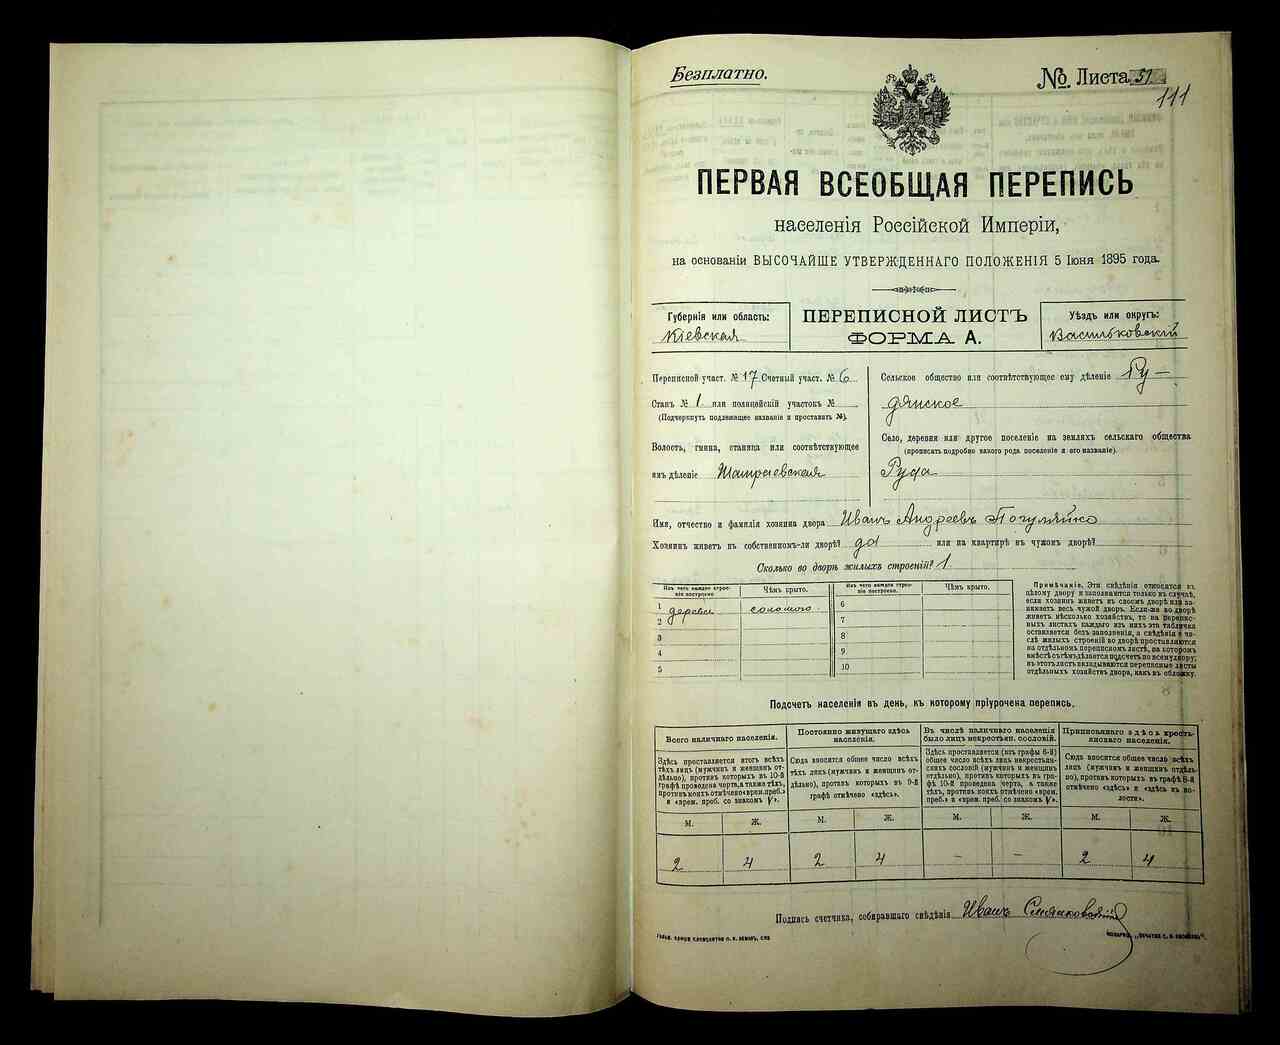 Безплатно.
№ Листа 51
111
ПЕРВАЯ ВСЕОБЩАЯ ПЕРЕПИСЬ
населенія Россійской Имперіи,
на основаніи ВЫСОЧАЙШЕ УТВЕРЖДЕННАГО ПОЛОЖЕНІЯ 5 Іюня 1895 года.
Губернія или область:
Кіевская
ПЕРЕПИСНОЙ ЛИСТЪ
ФОРМА А.
Уѣздъ или округъ:
Васильковскій
Переписной участ. № 17 Счетный участ. № 6
Станъ № 1 или полицейскій участокъ №
(Подчеркнуть подлежащее названіе и проставить №).
Волость, гмина, станица или соотвѣтствующее
имъ дѣленіе
Сельское общество или соотвѣтствующее ему дѣленіе Ру-
дянское
Село, деревня или другое поселеніе на земляхъ сельскаго общества
(прописать подробно какого рода поселеніе и его названіе).
Руда
Имя, отчество и фамилія хозяина двора Иванъ Андреевъ Погуляйко
Хозяинъ живетъ въ собственномъ-ли дворѣ? да или на квартирѣ въ чужомъ дворѣ?
Сколько во дворѣ жилыхъ строеній? 1.
Изъ чего каждое строе-
ніе построено.
Чѣмъ крыто.
Изъ чего каждое строе-
ніе построено.
Чѣмъ крыто.
1 дерева соломою 6
2 7
3 8
4 9
5 10
Примѣчаніе. Эти свѣдѣнія относятся къ
цѣлому двору и заполняются только въ случаѣ,
если хозяинъ живетъ въ своемъ дворѣ или за-
нимаетъ весь чужой дворъ. Если-же во дворѣ
живетъ нѣсколько хозяйствъ, то на перепис-
ныхъ листахъ каждаго изъ нихъ эта табличка
оставляется безъ заполненія, а свѣдѣнія о чи-
слѣ жилыхъ строеній во дворѣ проставляются
на отдѣльномъ переписномъ листѣ, на которомъ
вмѣстѣ съ тѣмъ дѣлается подсчетъ по всему двору;
въ этотъ листъ вкладываются переписные листы
отдѣльныхъ хозяйствъ двора, какъ въ обложку.
Подсчетъ населенія въ день, къ которому пріурочена перепись.
Всего наличнаго населенія.
Здѣсь проставляется итогъ всѣхъ
тѣхъ лицъ (мужчинъ и женщинъ от-
дѣльно), противъ которыхъ въ 10-й
графѣ проведена черта, а также тѣхъ,
противъ коихъ отмѣчено «врем. преб.»
и «врем. преб. со знакомъ V».
Постоянно живущаго здѣсь
населенія.
Сюда вносится общее число всѣхъ
тѣхъ лицъ (мужчинъ и женщинъ от-
дѣльно), противъ которыхъ въ 9-й
графѣ отмѣчено «здѣсь».
Въ числѣ наличнаго населенія
было лицъ некрестьян. сословій.
Здѣсь проставляется (изъ графы 6-й)
общее число всѣхъ лицъ некрестьян-
скихъ сословій (мужчинъ и женщинъ
отдѣльно), противъ которыхъ въ гра-
фѣ 10-й проведена черта, а также
тѣхъ, противъ коихъ отмѣчено «врем.
преб.» и «врем. преб. со знакомъ V».
Приписаннаго здѣсь кресть-
янскаго населенія.
Сюда вносится общее число всѣхъ
лицъ (мужчинъ и женщинъ отдѣль-
но), противъ которыхъ въ графѣ 8-й
отмѣчено «здѣсь» и «здѣсь въ во-
лости».
М. Ж. М. Ж. М. Ж. М. Ж.
2 4 2 4 - - 2 4
Подпись счетчика, собиравшаго свѣдѣнія Иванъ